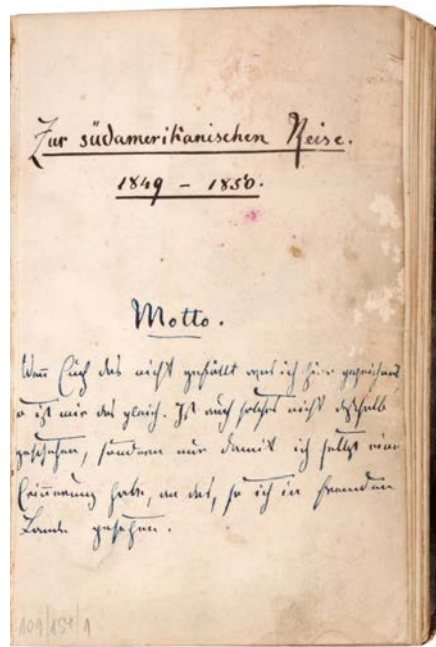 Zur südamerikanischen Reise.
1849 - 1850.
Motto.
Wenn Euch das nicht gefällt was ich hier gezeichnet
so ist mir das gleich. Ist auch solches nicht deßhalb
geschehen, sondern nur damit ich selbst eine
Erinnerung habe, an das, so ich in fremden
Lande gesehen.
109/151/1